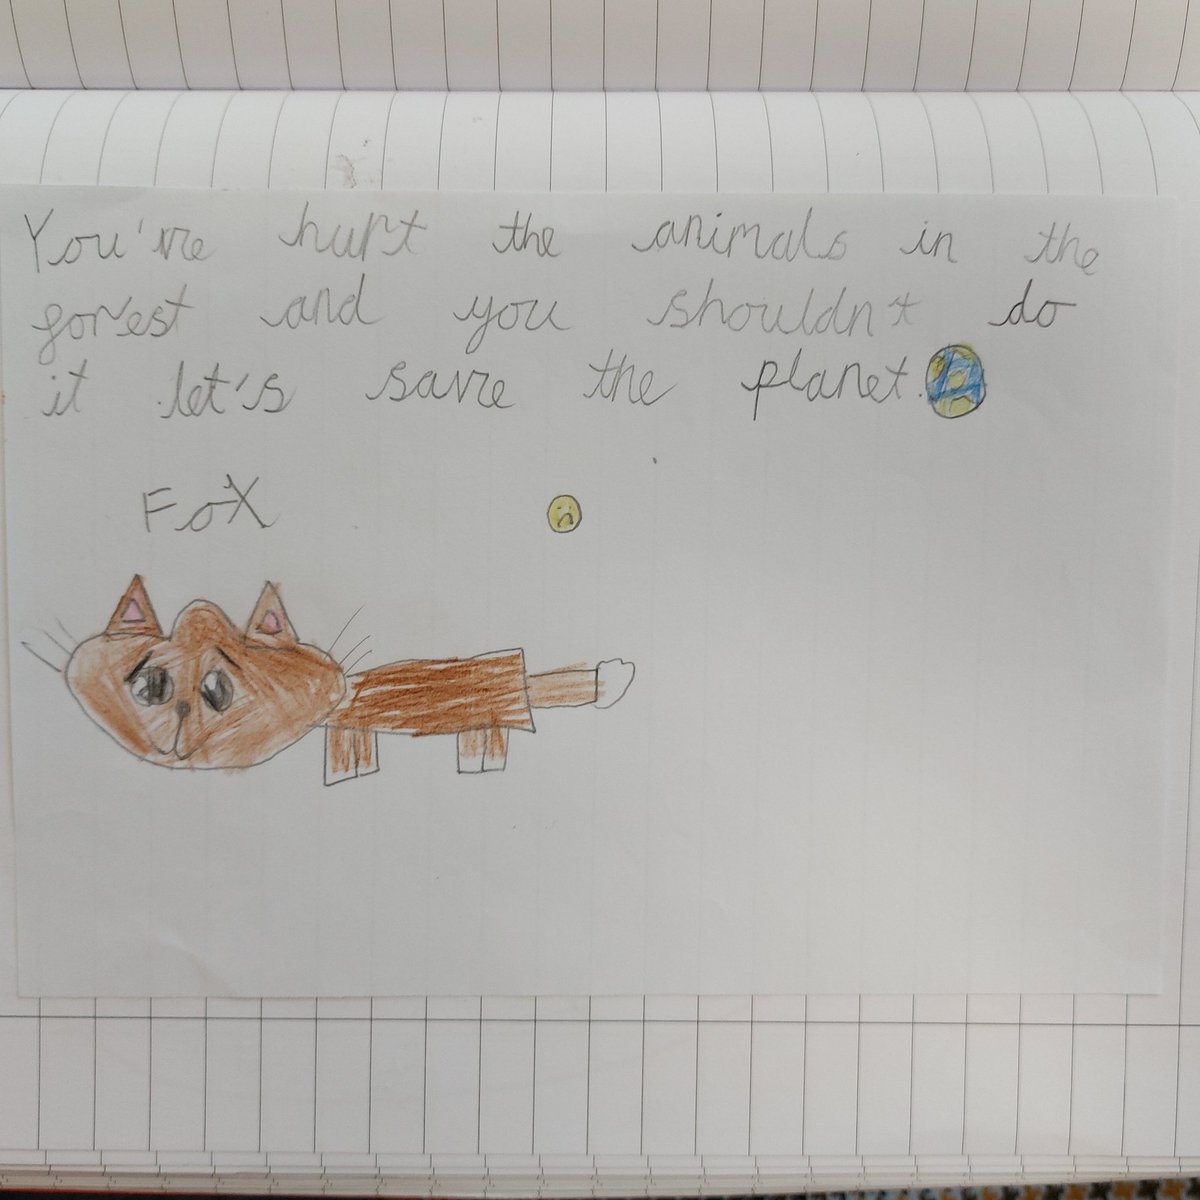 You've hurt the animals in the
forest and you shouldn't do
it let's save the planet.
Fox